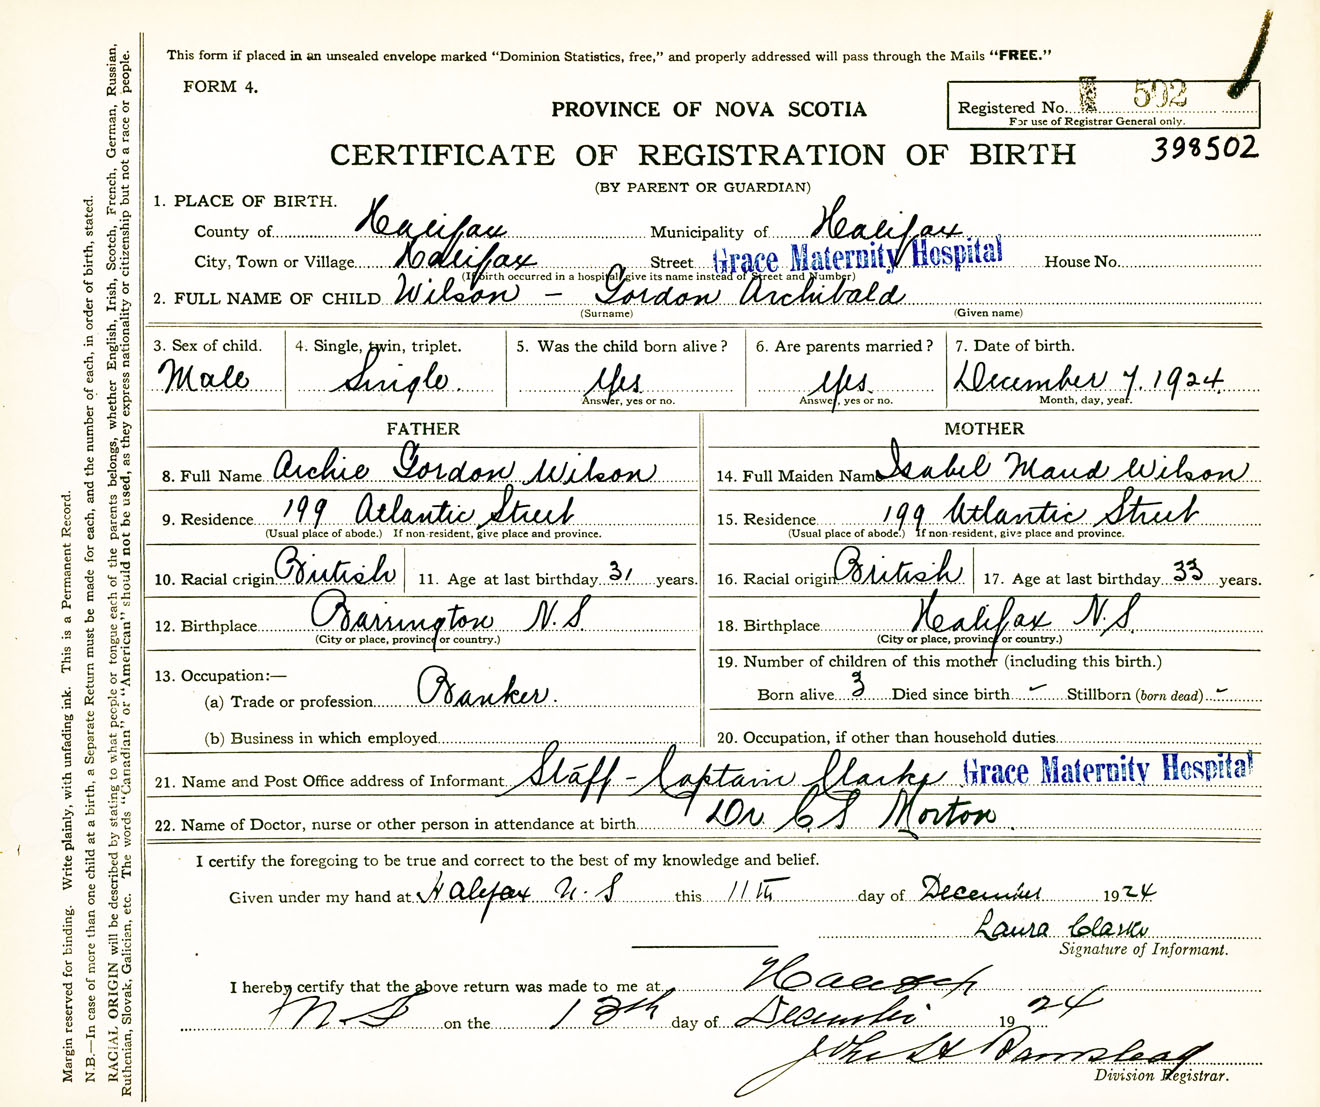 This form if placed in an unsealed envelope marked “Dominion Statistics, free,” and properly addressed will pass through the Mails “FREE.”
FORM 4.
PROVINCE OF NOVA SCOTIA
Registered No. 502
For use of Registrar General only.
CERTIFICATE OF REGISTRATION OF BIRTH
398502
(BY PARENT OR GUARDIAN)
1. PLACE OF BIRTH.
County of Halifax Municipality of Halifax
City, Town or Village Halifax Street Grace Maternity Hospital House No.
(If birth occurred in a hospital give its name instead of Street and Number)
2. FULL NAME OF CHILD Wilson – Gordon Archibald
(Surname) (Given name)
3. Sex of child. 4. Single, twin, triplet. 5. Was the child born alive? 6. Are parents married? 7. Date of birth.
Male Single. Yes Yes December 7. 1924
Answer, yes or no. Answer, yes or no. Month, day, year.
FATHER
8. Full Name Archie Gordon Wilson
9. Residence 199 Atlantic Street
(Usual place of abode.) If non-resident, give place and province.
10. Racial origin British 11. Age at last birthday 31 years.
12. Birthplace Barrington N.S.
(City or place, province or country.)
13. Occupation:—
(a) Trade or profession Banker.
(b) Business in which employed
MOTHER
14. Full Maiden Name Isabel Maud Wilson
15. Residence 199 Atlantic Street
(Usual place of abode.) If non-resident, give place and province.
16. Racial origin British 17. Age at last birthday 33 years.
18. Birthplace Halifax N.S.
(City or place, province or country.)
19. Number of children of this mother (including this birth.)
Born alive 3 Died since birth - Stillborn (born dead) -
20. Occupation, if other than household duties
21. Name and Post Office address of Informant Staff - Captain Clarke Grace Maternity Hospital
22. Name of Doctor, nurse or other person in attendance at birth Dr. C S Morton.
I certify the foregoing to be true and correct to the best of my knowledge and belief.
Given under my hand at Halifax N.S this 11th day of December 1924
Laura Clarke
Signature of Informant.
I hereby certify that the above return was made to me at
N.S on the 13th day of December 1924
John H
Division Registrar.
Margin reserved for binding. Write plainly, with unfading ink. This is a Permanent Record.
N.B.—In case of more than one child at a birth, a Separate Return must be made for each, and the number of each, in order of birth, stated.
RACIAL ORIGIN will be described by stating to what people or tongue each of the parents belongs, whether English, Irish, Scotch, French, German, Russian,
Ruthenian, Slovak, Galician, etc. The words “Canadian” or “American” should not be used, as they express nationality or citizenship but not a race or people.